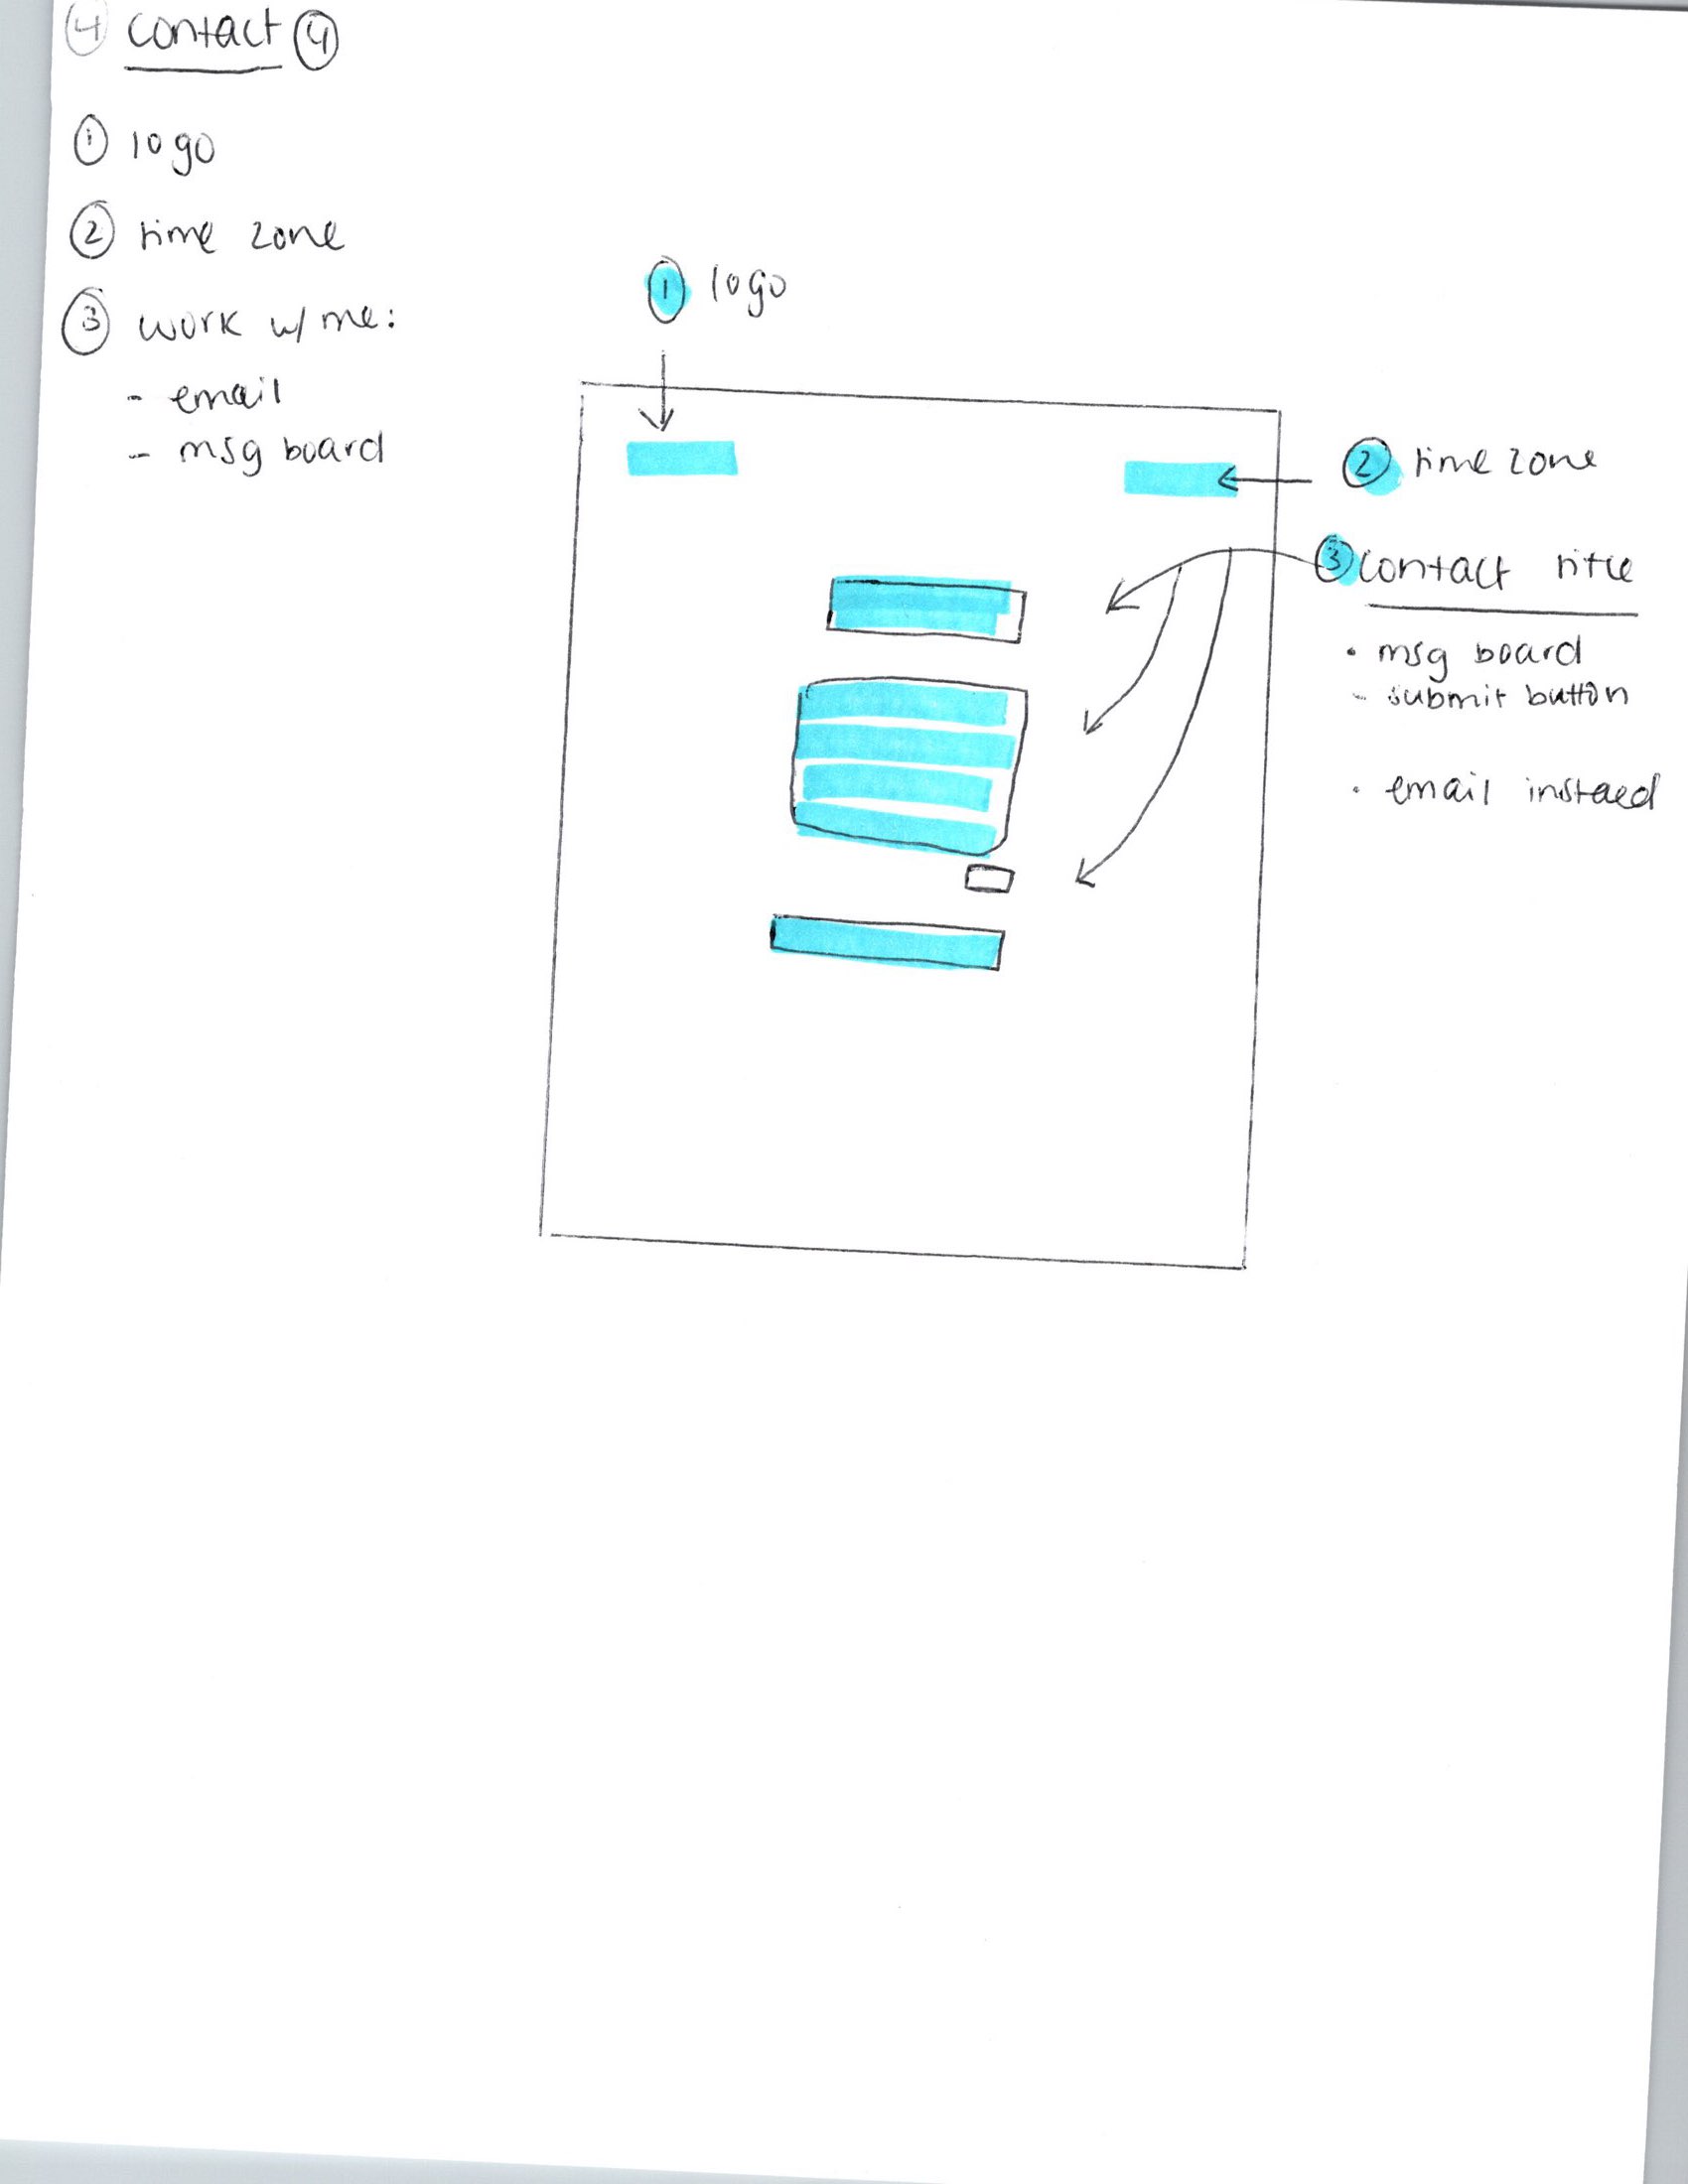 ④ contact ④
① logo
② time zone
③ work w/ me:
- email
- msg board
① logo
② time zone
③ contact title
• msg board
- submit button
• email instaed